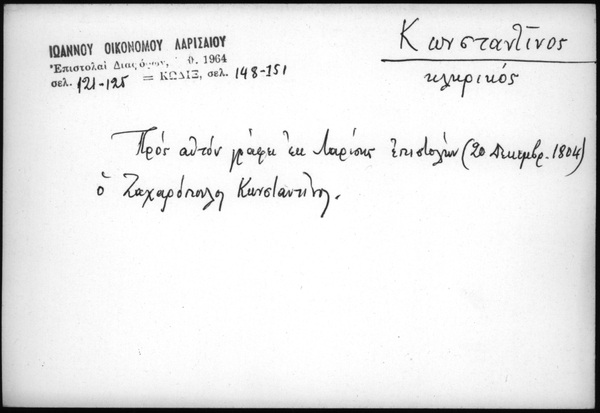 ΙΩΑΝΝΟΥ ΟΙΚΟΝΟΜΟΥ ΛΑΡΙΣΑΙΟΥ
Ἐπιστολαὶ 1964
σελ. 121-125 = ΚΩΔΙΞ, σελ. 148-151
Κωνσταντῖνος
κληρικός
Πρός αὐτόν γράφει ἐκ Λαρίσης ἐπιστολήν (20 Δεκεμβρ. 1804)
ὁ Ζαχαρόπουλος Κωνσταντῖνος.